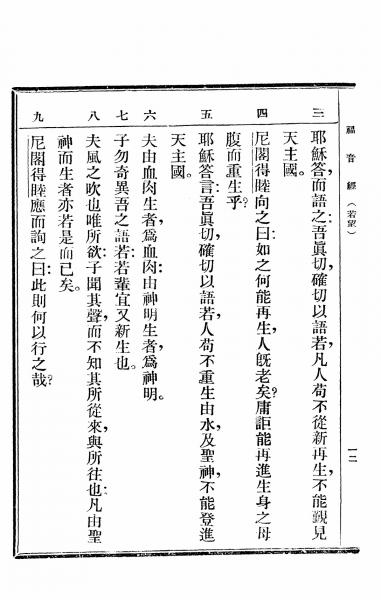 福音經(若望)
一二
三 耶穌答,而語之:吾眞切,確切以語若,凡人苟不從新再生,不能覲見
天主國。
四 尼閣得睦向之曰:如之何能再生,人旣老矣?庸詎能再進生身之母
腹而重生乎?
五 耶穌答言:吾眞切,確切以語若,人苟不重生由水,及聖神,不能登進
天主國。
六 夫由血肉生者,爲血肉;由神明生者,爲神明。
七 子勿奇異吾之語若:若輩宜又新生也。
八 夫風之吹也唯所欲:子聞其聲,而不知其所從來,與所往也:凡由聖
神而生者亦若是而已矣。
九 尼閣得睦應而詢之曰:此則何以行之哉?